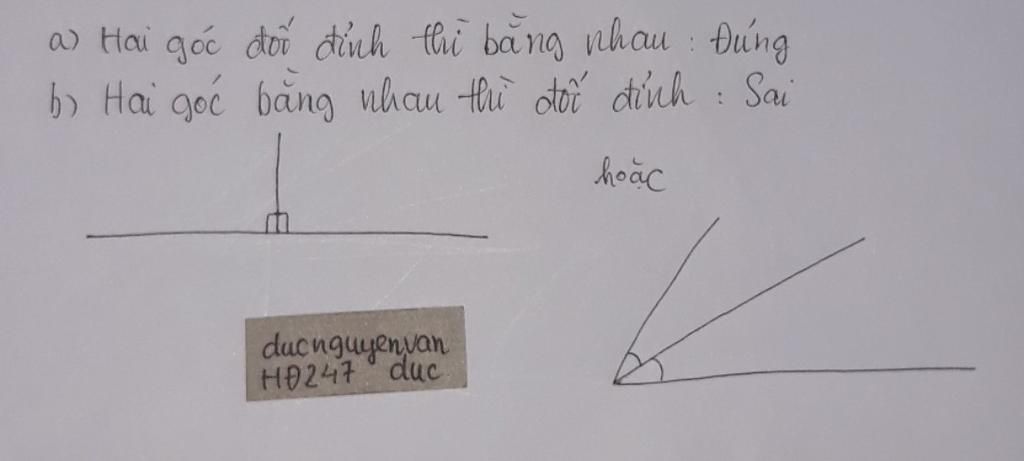 a) Hai góc đối đỉnh thì bằng nhau : Đúng
b) Hai góc bằng nhau thì đối đỉnh : Sai
hoặc
ducnguyenvan
HĐ247 duc